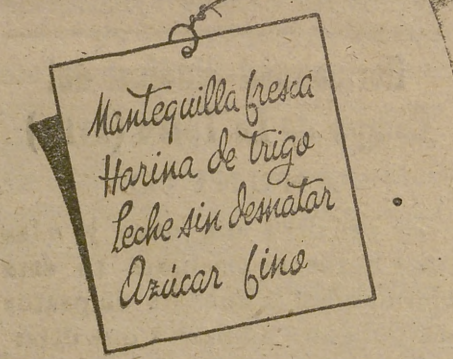 Mantequilla fresca
Harina de trigo
Leche sin desnatar
Azúcar fino